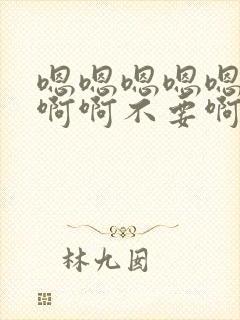 嗯嗯嗯嗯嗯
啊啊不要啊
林九囡